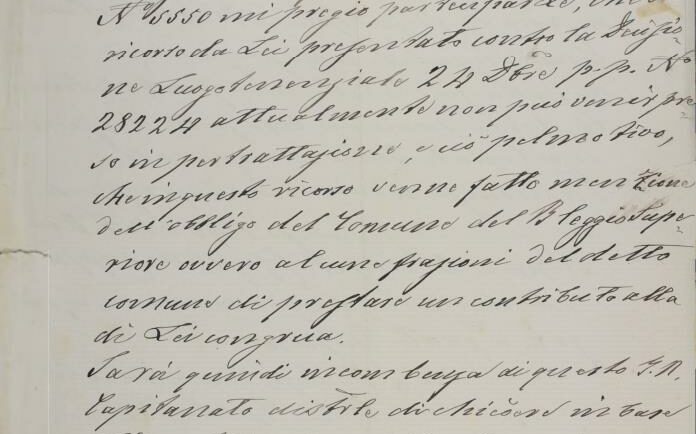 N.º 5550 mi pregio partecipare, che il
ricorso da Lei presentato contro la Decisio-
ne Luogotenenziale 24 Dbre p.p. Nº
28224 attualmente non può venir pre-
so in pertrattazione, e ciò pel motivo,
che in questo ricorso venne fatto menzione
dell'obbligo del Comune del Bleggio Supe-
riore ovvero alcune frazioni del detto
comune di prestare un contributo alla
di Lei congrua.
Sarà quindi incombenza di questo I. R.
Capitanato distrle di chiedere in base